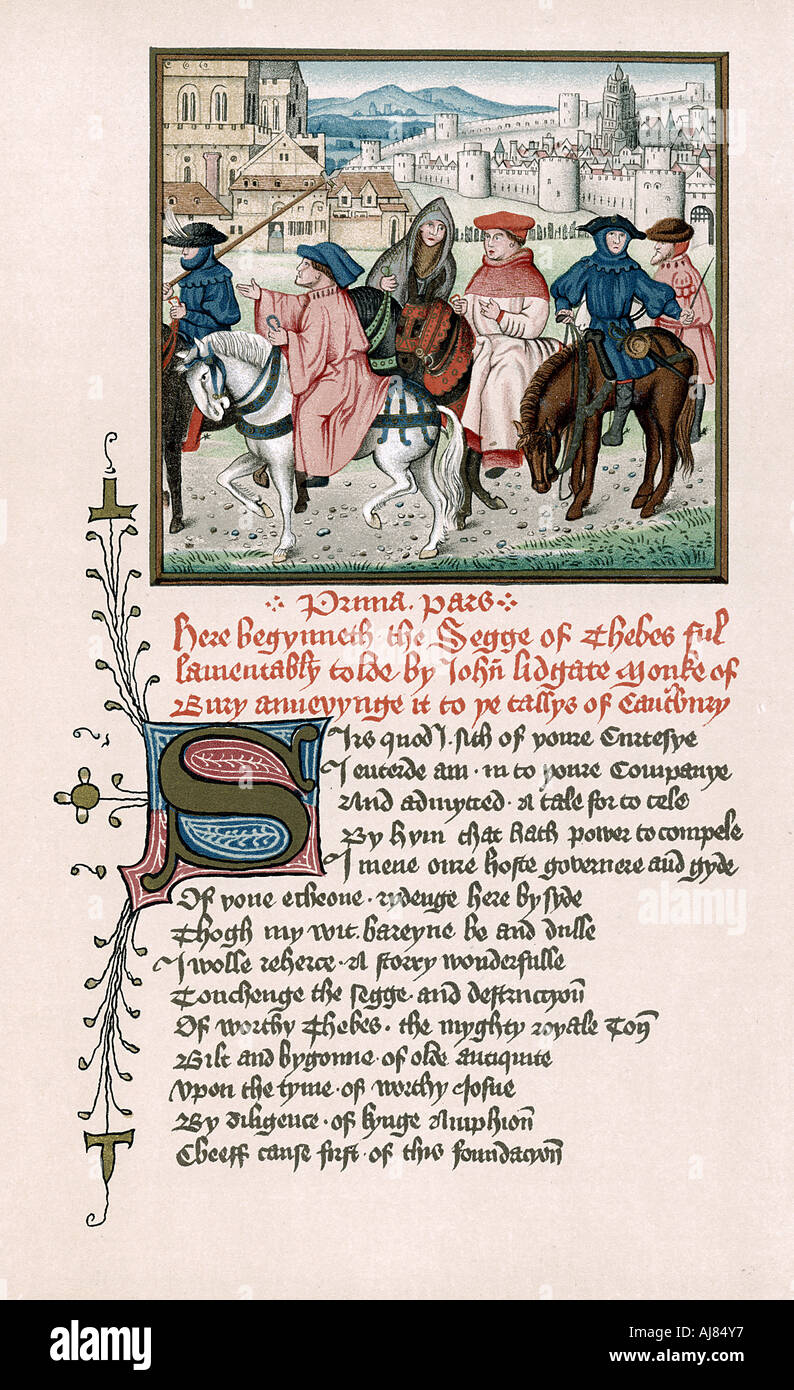 Prima . pars
Here begynneth the Segge of Thebes ful
lamentably tolde by John lidgate Monke of
Bury annevynge it to þe tallys of Cauntbury
Sirs quod I . sith of youre Curtesye
I enterde am . in to youre Companye
And admytted . A tale for to tele
By hym that hath power to compele
I mene oure hoste governere and gyde
Of yone echeone . rydenge here by syde
Thogh my wit . bareyne be and dulle
I wolle reherce . A storry wonderfulle
Touchenge the segge . and destruccyon
Of worthy Thebes . the myghty royale Ton
Bilt and bygonne . of olde antiquite
Upon the tyme . of worthy Josue
By diligence . of kynge Amphion
Cheeff cause first . of this foundacyon
alamy
alamy
alamy
Image ID: AJ84Y7
www.alamy.com